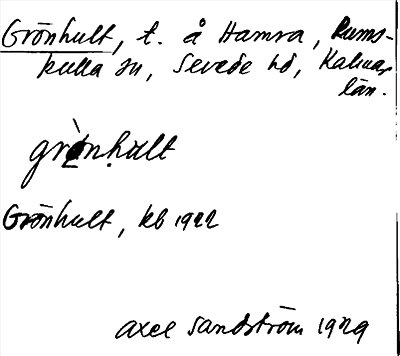 Grönhult, t. å Hamra, Rums-
kulla sn, Sevede hd, Kalmar
län.
grὼnhult
Grönhult, kb 1922
Axel Sandström 1929